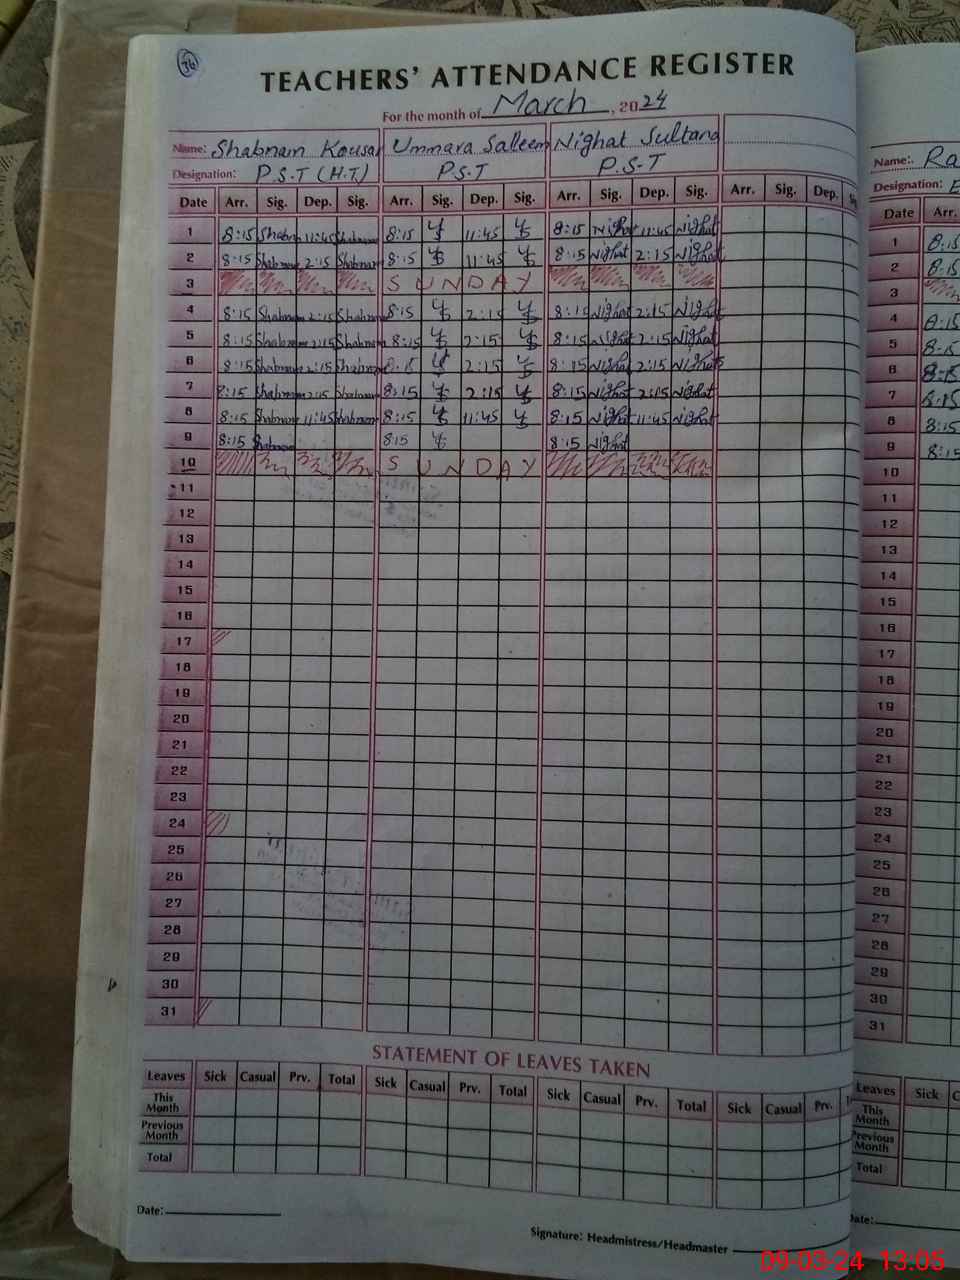 36
TEACHERS' ATTENDANCE REGISTER
For the month of March, 2024
Name: Shabnam Kousar Ummara Saleem Nighat Sultana
Designation: P.S.T (H.T.) P.S.T P.S.T
Date Arr. Sig. Dep. Sig. Arr. Sig. Dep. Sig. Arr. Sig. Dep. Sig. Arr. Sig. Dep.
1 8:15 Shabnam 11:45 Shabnam 8:15 11:45 8:15 Nighat 11:45 Nighat
2 8:15 Shabnam 2:15 Shabnam 8:15 11:45 8:15 Nighat 2:15 Nighat
3 SUNDAY
4 8:15 Shabnam 2:15 Shabnam 8:15 2:15 8:15 Nighat 2:15 Nighat
5 8:15 Shabnam 2:15 Shabnam 8:15 2:15 8:15 Nighat 2:15 Nighat
6 8:15 Shabnam 2:15 Shabnam 8:15 2:15 8:15 Nighat 2:15 Nighat
7 8:15 Shabnam 2:15 Shabnam 8:15 2:15 8:15 Nighat 2:15 Nighat
8 8:15 Shabnam 11:45 Shabnam 8:15 11:45 8:15 Nighat 11:45 Nighat
9 8:15 Shabnam 8:15 8:15 Nighat
10 SUNDAY
11
12
13
14
15
16
17
18
19
20
21
22
23
24
25
26
27
28
29
30
31
STATEMENT OF LEAVES TAKEN
Leaves Sick Casual Prv. Total Sick Casual Prv. Total Sick Casual Prv. Total Sick Casual Prv.
This Month
Previous Month
Total
Date:
Signature: Headmistress/Headmaster
Name:. Ra
Designation:
Date Arr.
1 8:15
2 8:15
3
4 8:15
5 8:15
6 8:15
7 8:15
8 8:15
9 8:15
10
11
12
13
14
15
16
17
18
19
20
21
22
23
24
25
26
27
28
29
30
31
Leaves Sick
This Month
Previous Month
Total
Date:
09-03-24 13:05